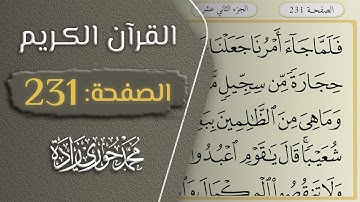 القرآن الكريم
الصفحة: 231
محمد خوري زادة
الصفحة 231
الجزء الثاني عشر
فَلَمَّا جَآءَ أَمْرُنَا جَعَلْنَا
حِجَارَةً مِّن سِجِّيلٍ
وَمَا هِيَ مِنَ ٱلظَّٰلِمِينَ
شُعَيْبًا ۚ قَالَ يَٰقَوْمِ ٱعْبُدُوا۟
وَلَا تَنقُصُوا۟ ٱلْمِكْيَالَ